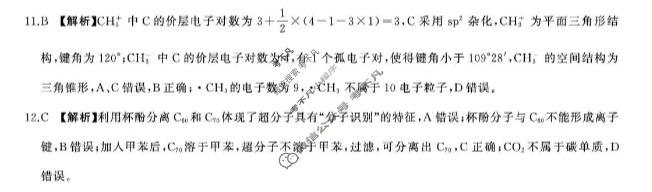 11.B 【解析】CH₃⁺ 中 C 的价层电子对数为 3+1/2×(4-1-3×1)=3,C 采用 sp² 杂化,CH₃⁺ 为平面三角形结
构,键角为 120°;CH₃⁻ 中 C 的价层电子对数为4,有1 个孤电子对,使得键角小于 109°28′,CH₃⁻ 的空间结构为
三角锥形,A、C 错误,B 正确;·CH₃的电子数为 9,·CH₃ 不属于 10 电子粒子,D 错误。
12.C 【解析】利用杯酚分离 C₆₀和 C₇₀体现了超分子具有“分子识别”的特征,A 错误;杯酚分子与 C₆₀不能形成离子
键,B 错误;加入甲苯后,C₇₀溶于甲苯,超分子不溶于甲苯,过滤,可分离出 C₇₀,C 正确;CO₂ 不属于碳单质,D
错误。